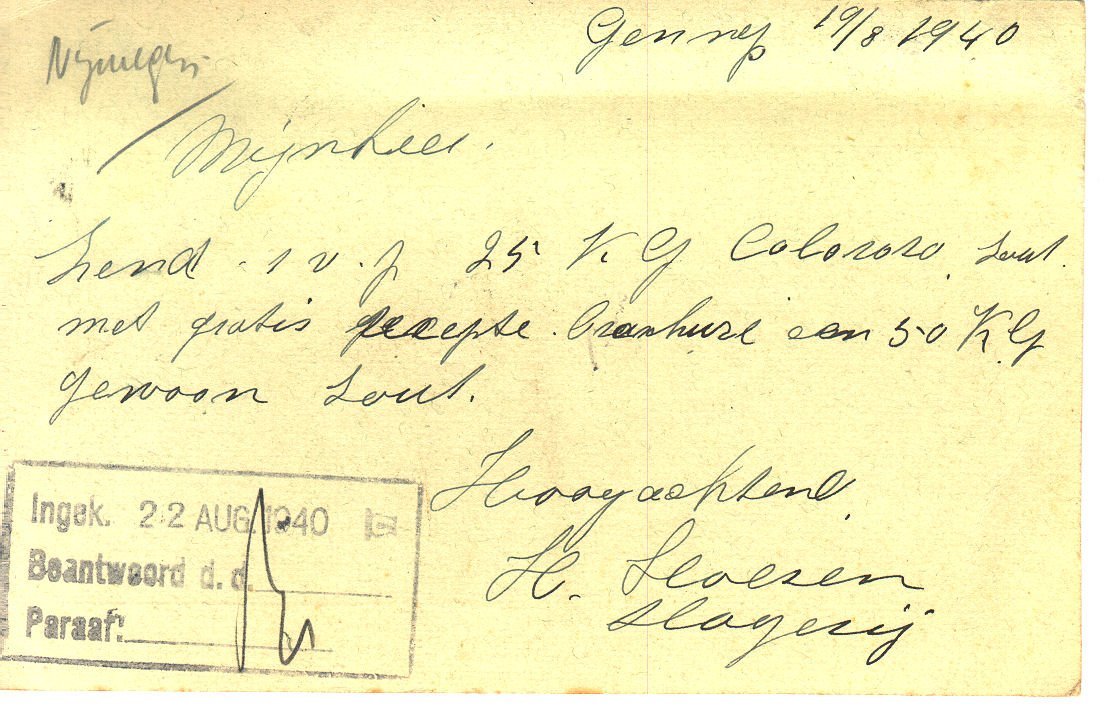 Gennep 19/8 1940
Nijmegen
Mijnheer.
Zend s v. p 25 KG Colorozo Zout.
met gratis recepte en 50 KG
gewoon zout.
Hoogachtend
H.
Slagerij
Ingek. 22 AUG. 1940
Beantwoord d.d.
Paraaf: